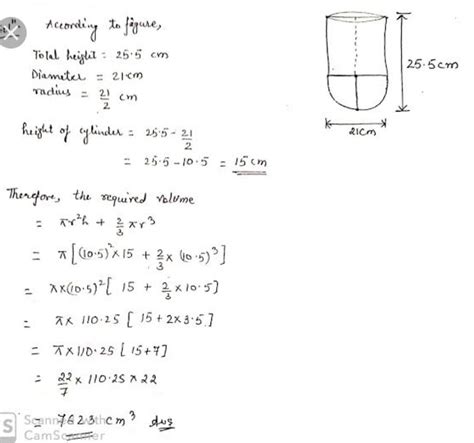 According to figure,
Total height = 25.5 cm
Diameter = 21 cm
radius = 21/2 cm
25.5cm
21cm
height of cylinder = 25.5 - 21/2
= 25.5 - 10.5 = 15 cm
Therefore, the required volume
= πr²h + 2/3 πr³
= π[(10.5)² × 15 + 2/3 × (10.5)³]
= π×(10.5)² [15 + 2/3 × 10.5]
= π× 110.25 [15 + 2×3.5]
= π×110.25 [15+7]
= 22/7 × 110.25 × 22
= 7623 cm³ Ans
S Scanned with
CamScanner